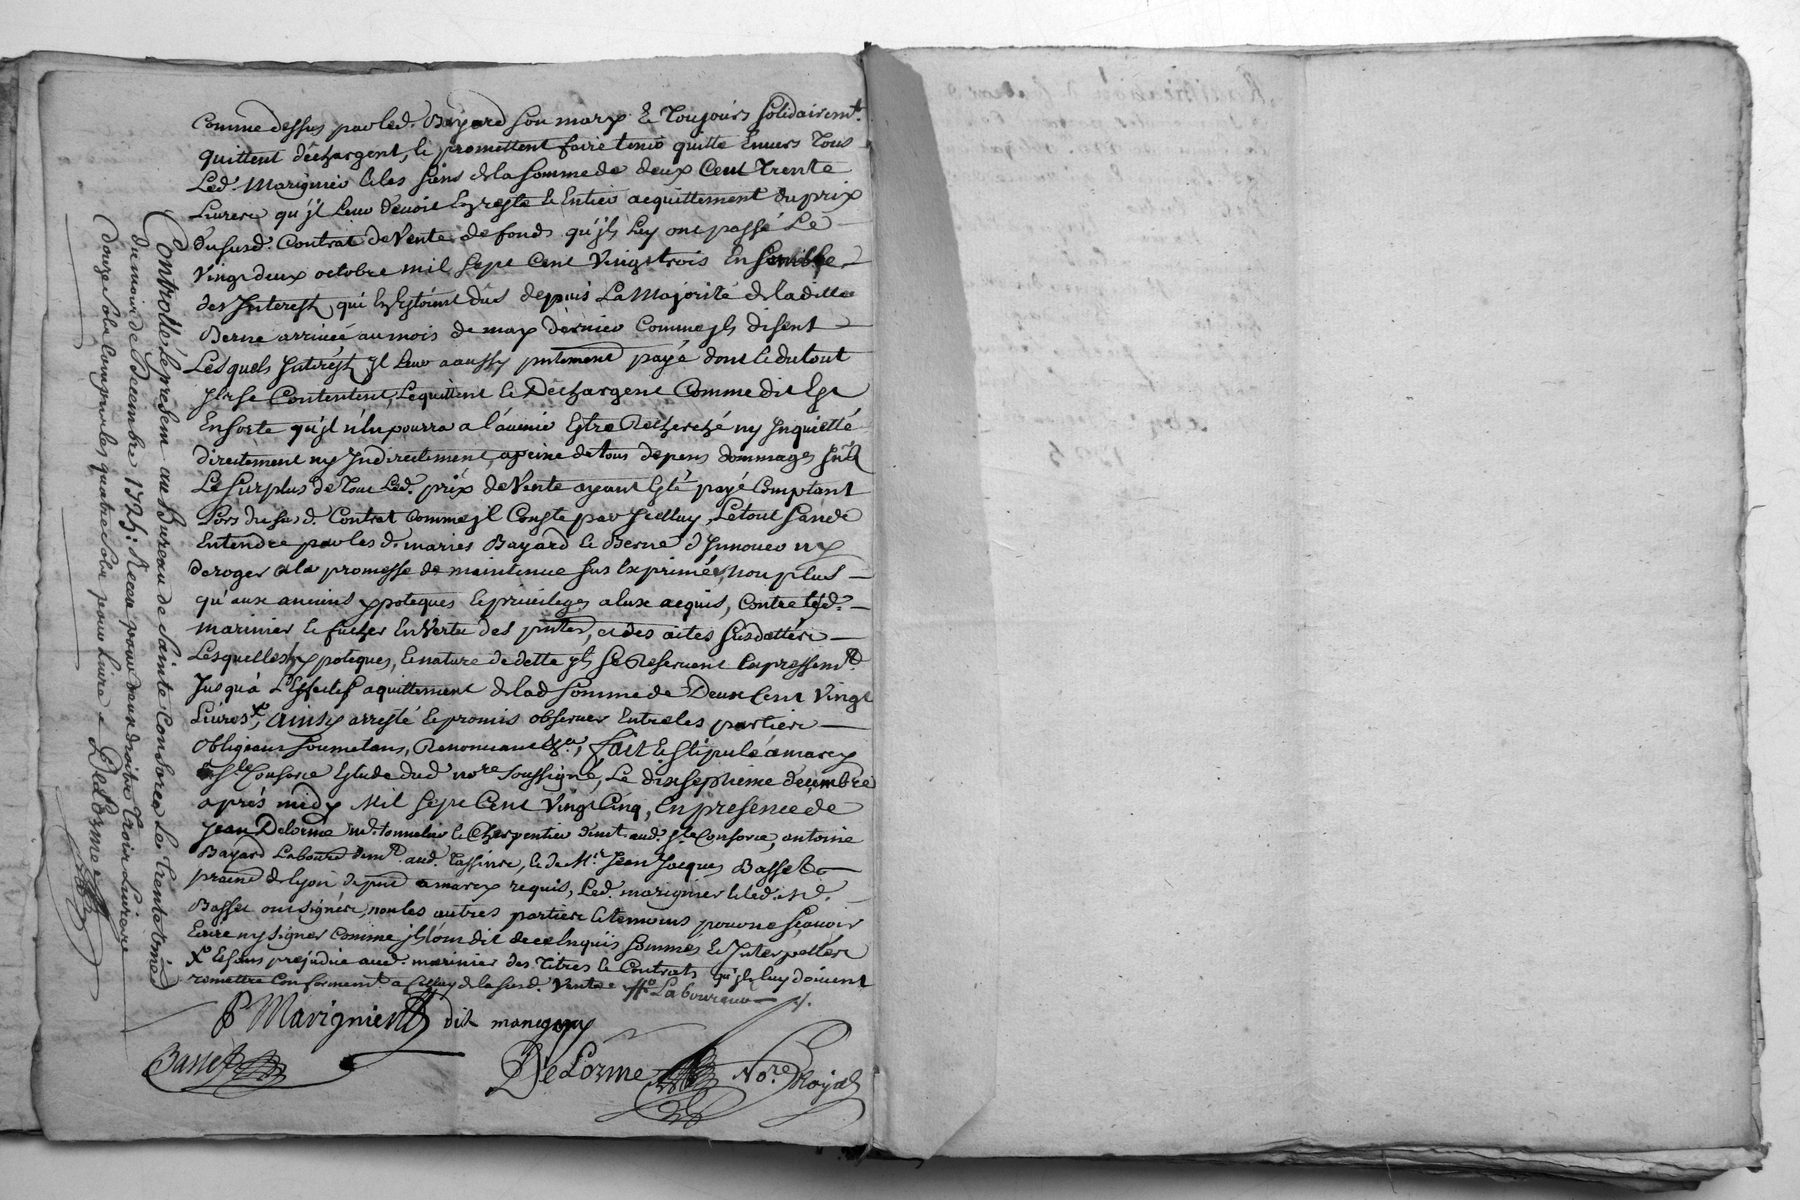 Comme dessus par led. Bayard son mary & Toujours solidairemt.
quittent déchargent, & promettent faire tenir quitte Envers Tous
Led. Marignier & les siens de la somme de deux Cent Trente
Livres qu'jl Leur devoit En reste & Entier acquittement du prix
du susd. Contrat de Vente de fonds qu'jls Luy ont passé Le
Vingt deux octobre mil sept Cent Vingt trois Ensemble
des Interest qui En Estoient dûs depuis La Majorité de laditte
Berne arrivée au mois de may dernier Comme jls disent
Lesquels Interest jl Leur a aussy pntement payé dont & du tout
jls se Contentent, Le quittent & Déchargent Comme dit Est
En sorte qu'jl n'En pourra a l'avenir Estre Recherché ny Inquietté
directement ny Indirectement, a peine de tous depens dommages
Le surplus de Tout Led. prix de Vente ayant Esté payé Comptant
Lors du susd. Contrat Comme jl Conste par jcelluy, Le tout sans
Entendre par les d. maries Bayard & Berne d'Innover ny
deroger a la promesse de maintenue sus Exprimée, Non plus
qu'aux anciens ypoteques & privileges a Eux acquis, Contre Led.
marinier & fucher En Vertu des pntes, et des actes susdattés
Lesquelles ypoteques, & nature de dette jls se Reservent Expressemt.
Jusqu'à L'Effectif aquittement de lad somme de Deux Cent Vingt
Livres, X Ainsy arresté & promis observer Entre les parties
obligeant soumetans, Renonceant &a, fait & stipulé a marcy
Ste. Consorce Estude dud nore soussigné, Le dix septieme decembre
après midy Mil sept Cent Vingt Cinq, En presence de
Jean Delorme md. tonnelier & Charpentier demt. aud. Ste. Consorce, antoine
Bayard Laboureur demt. aud. Tassins, & de Mr. Jean Jacques Basset
praticien de lyon de pnt a marcy requis, Led. marignier & led. Sr.
Basset ont signés, non les autres parties & temoins pour ne sçavoir
Ecrire ny signer Comme jls l'ont dit de ce Enquis sommes & Interpellés
X & sans prejudice aud. marinier des Titres & Contrats qu'jls luy doivent
remettre Conforment a Celluy de la susd. Vente
P Marignier dit
Basset
DeLorme Nore. Royal
Controllé le present au Bureau de Sainte Consorce Le Trentieme
du mois de Decembre 1725: Receu pour deux droits Trois Livres
Douze sols Compris les quatre sols pour Livre. DeLorme